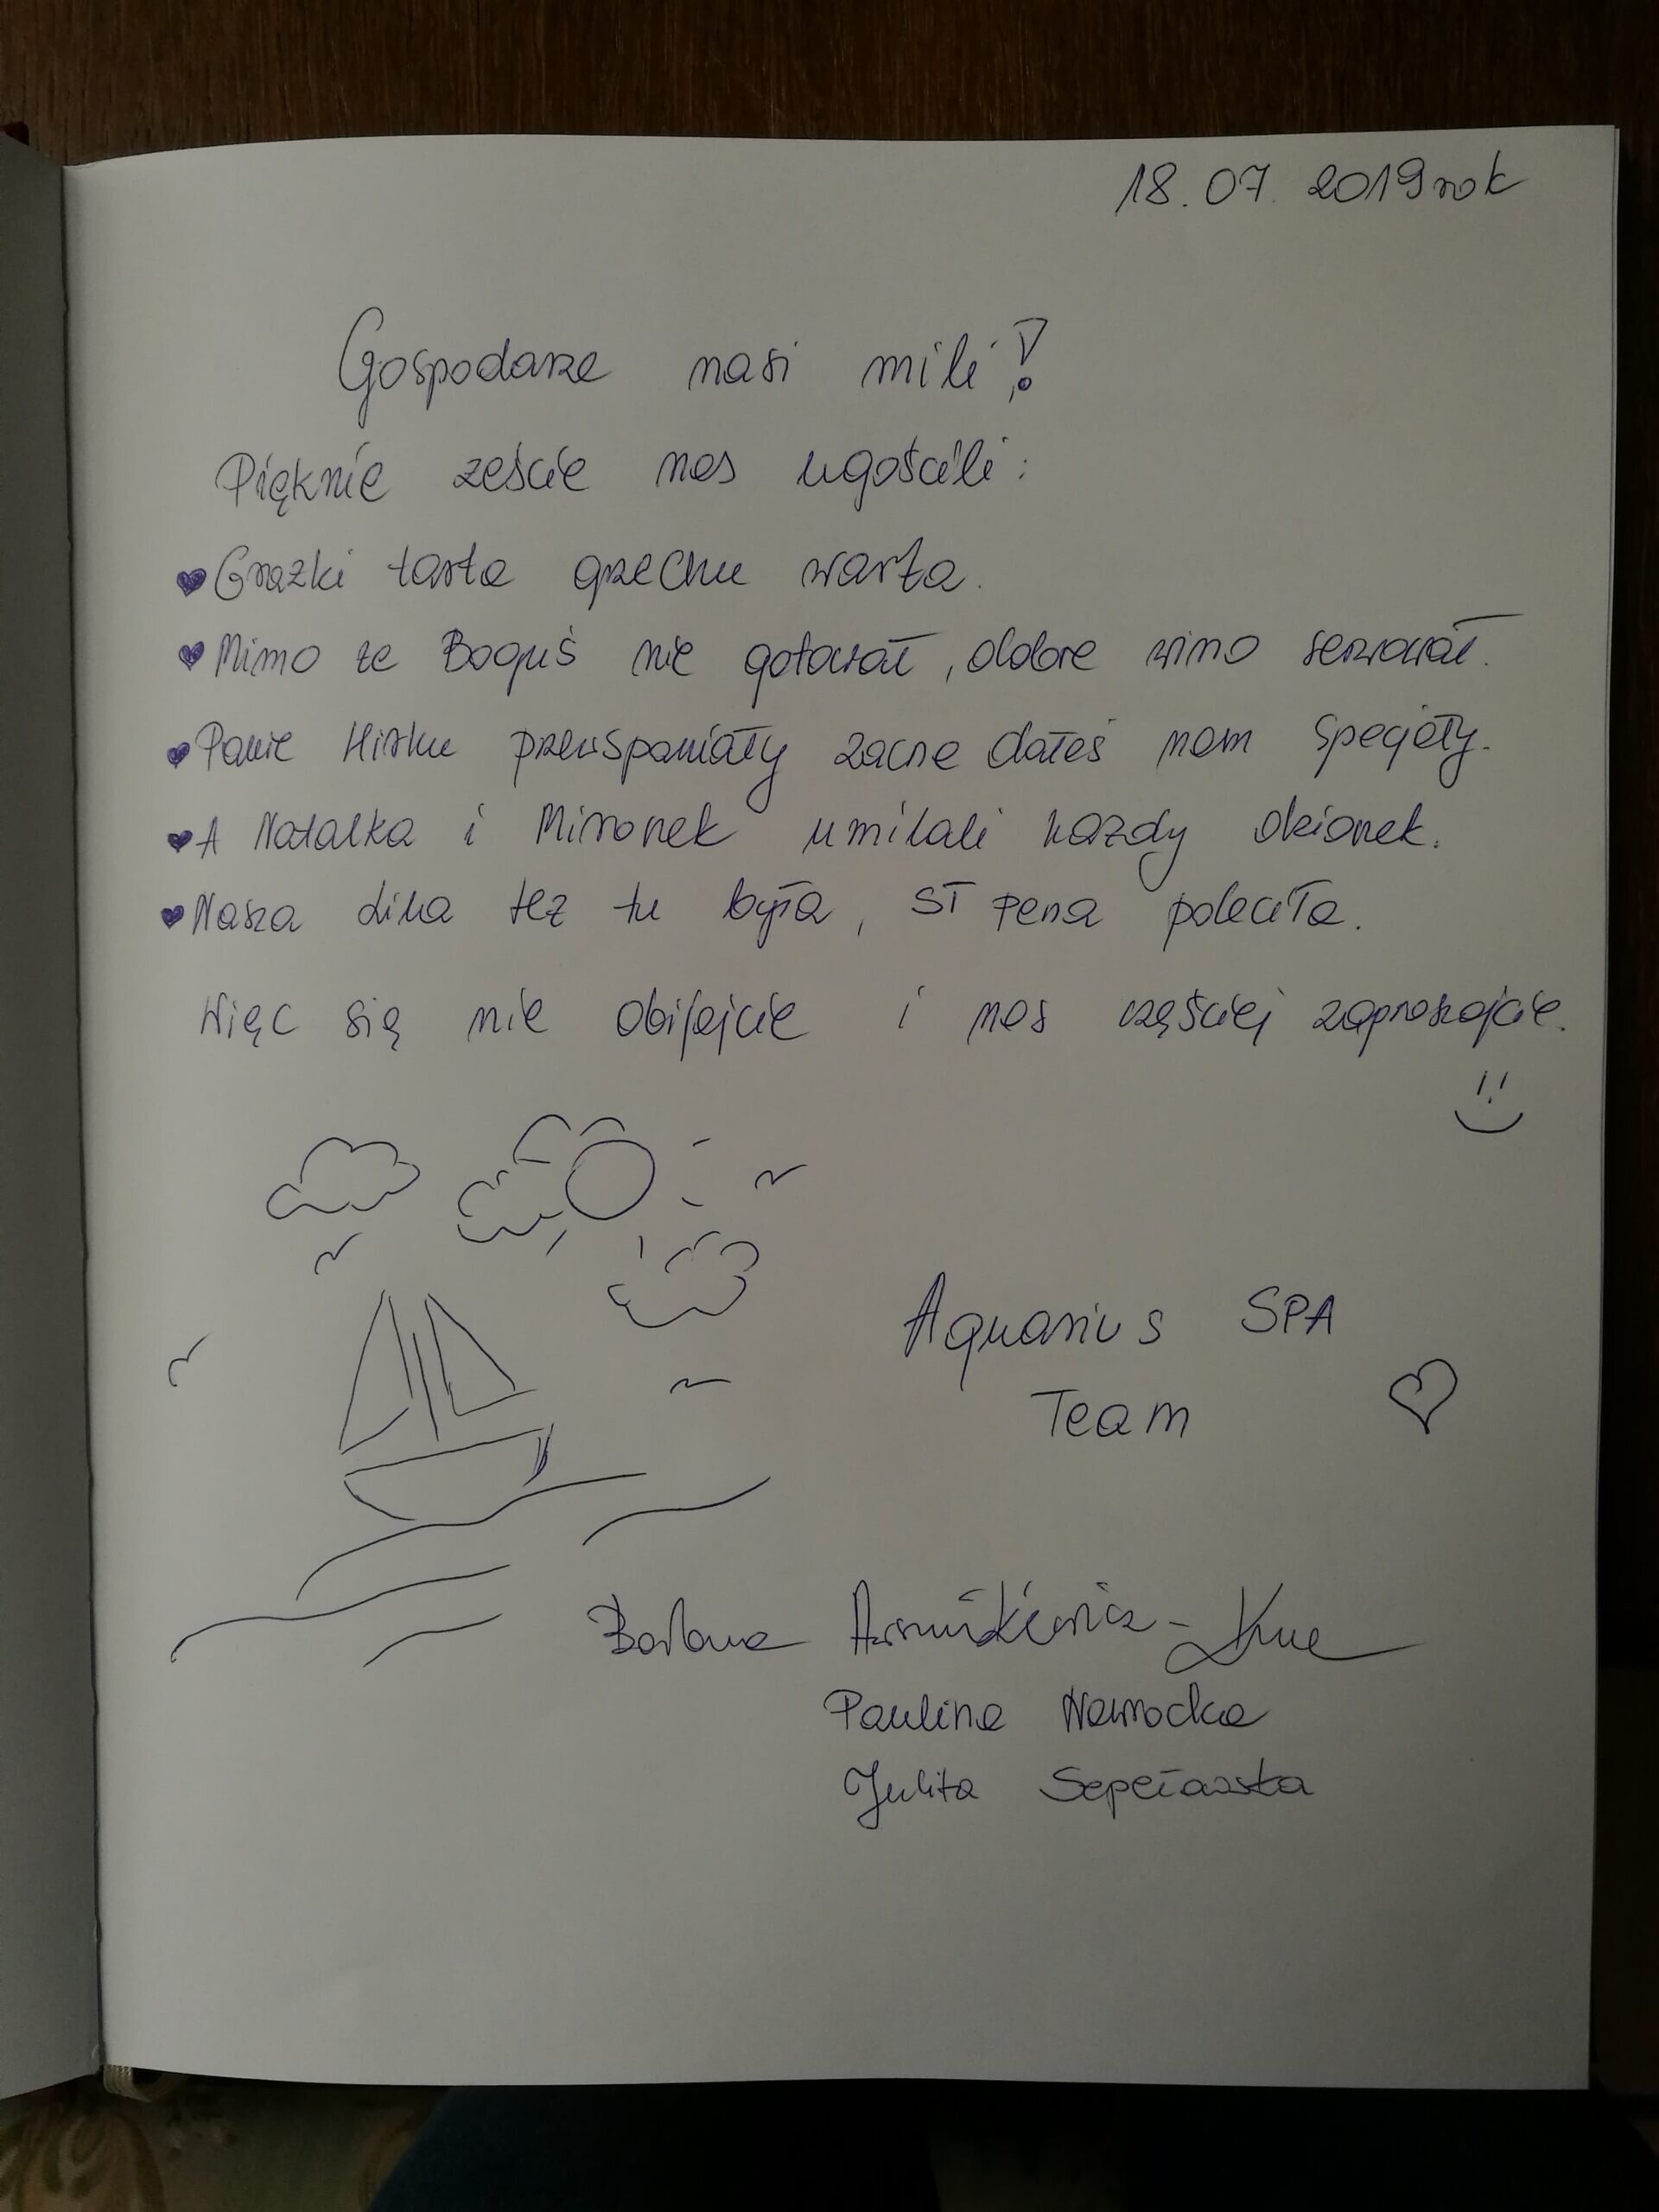 18.07.2019 rok
Gospodarze nasi mili!
Pięknie żeście nas ugościli:
Grażki tarta grzechu warta.
Mimo że Boguś nie gotował, dobre wino serwował.
Panie Mirku przewspaniały zacne dałeś nam specjały.
A Natalka i Mironek umilali każdy dzionek.
Nasza też tu była, poleciła.
Więc się nie obijajcie i nas częściej zapraszajcie.
Aquarius SPA
Team
Paulina Nawrocka
Julita